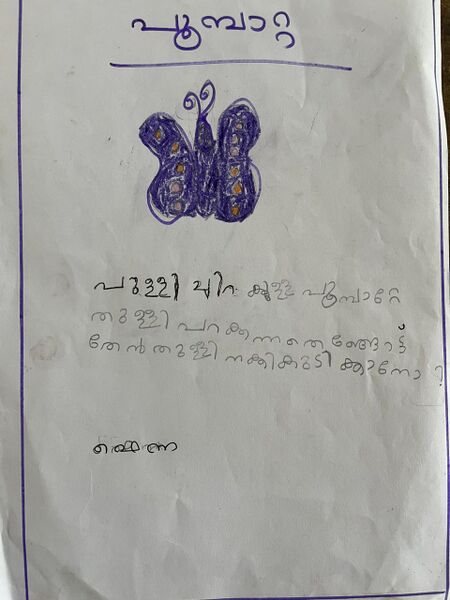 പൂമ്പാറ്റ
പുള്ളി ചിറ കുള്ള പൂമ്പാറേ
തുള്ളി പറക്കുന്നതെങ്ങോട്ട്
തേൻതുള്ളി നക്കികുടിക്കാനോ?